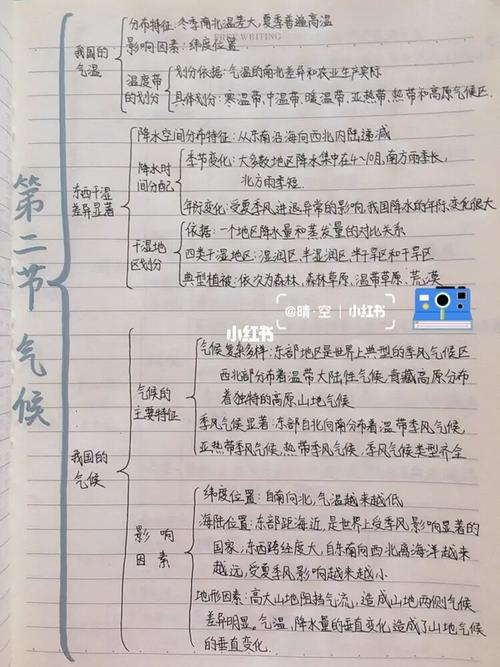 第二节 气候
我国的
气温
分布特征:冬季南北温差大,夏季普遍高温
影响因素:纬度位置
FREE WRITING
温度带
的划分
划分依据:气温的南北差异和农业生产实际
具体划分:寒温带,中温带,暖温带,亚热带,热带和高原气候区.
东西干湿
差异显著
降水空间分布特征:从东南沿海向西北内陆递减
降水时
间分配
季节变化:大多数地区降水集中在4~10月,南方雨季长,
北方雨季短.
年际变化:受夏季风进退异常的影响,我国降水的年际变化很大
干湿地
区划分
依据:一个地区降水量和蒸发量的对比关系
四类干湿地区:湿润区,半湿润区,半干旱区和干旱区
典型植被:依次为森林,森林草原,温带草原,荒漠
@晴·空 | 小红书
小红书
我国的
气候
气候的
主要特征
气候复杂多样:东部地区是世界上典型的季风气候区
西北部分布着温带大陆性气候,青藏高原分布
着独特的高原山地气候
季风气候显著:东部自北向南分布着温带季风气候,
亚热带季风气候,热带季风气候,季风气候类型齐全
影响
因素
纬度位置:自南向北,气温越来越低
海陆位置:东部距海近,是世界上受季风影响显著的
国家;东西跨经度大,自东南向西北离海洋越来
越远,受夏季风影响越来越小
地形因素:高大山地阻挡气流,造成山地两侧气候
差异明显。气温,降水量的垂直变化造成了山地气候
的垂直变化.